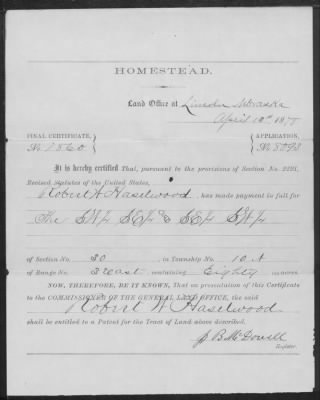 HOMESTEAD.
Land Office at Lincoln Nebraska
April 10th 187
FINAL CERTIFICATE, APPLICATION,
No 1860 No
It is hereby certified That, pursuant to the provisions of Section No. 2291,
Revised Statutes of the United States,
Robert W Haselwood, has made payment in full for
The
of Section No. 30, in Township No. 10 N
of Range No. 3 East, containing Eighty acres.
NOW, THEREFORE, BE IT KNOWN, That on presentation of this Certificate
to the COMMISSIONER OF THE GENERAL LAND OFFICE, the said
Robert W Haselwood
shall be entitled to a Patent for the Tract of Land above described.
J. B. McDowell
Register.